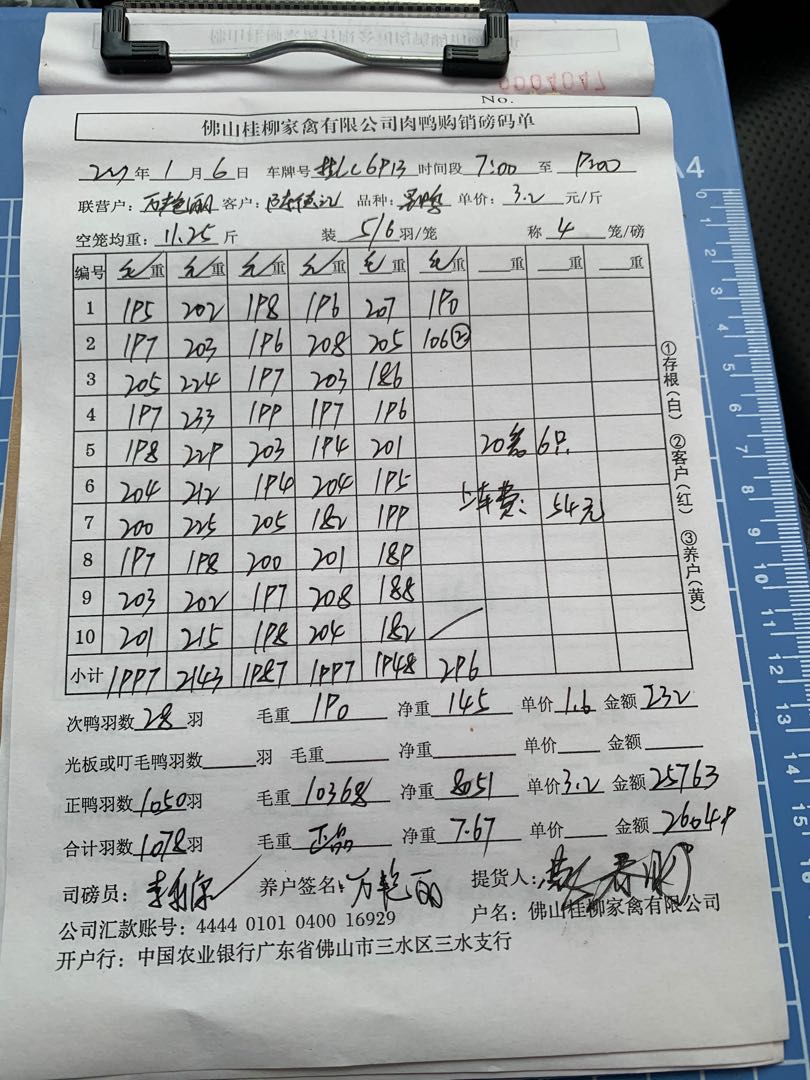 No.
佛山桂柳家禽有限公司肉鸭购销磅码单
年 1 月 6 日 车牌号 时间段 7:00 至 9:00
联营户: 万艳丽 客户: 品种: 单价: 3.2 元/斤
空笼均重: 11.25 斤 装 5/6 羽/笼 称 4 笼/磅
编号 毛/重 毛/重 毛/重 毛/重 毛/重 毛/重 重 重 重
1 195 202 198 196 207 190
2 197 203 196 208 205 106②
3 205 224 197 203 186
4 197 233 199 197 196
5 198 229 203 194 201 20笼6只
6 204 212 194 204 195
7 200 225 205 182 199 上车费: 54元
8 197 198 200 201 189
9 203 202 197 208 188
10 201 215 198 204 182
小计 1997 2143 1987 1997 1948 296
①存根(白) ②客户(红) ③养户(黄)
次鸭羽数 28 羽 毛重 190 净重 145 单价 1.6 金额 232
光板或叮毛鸭羽数 羽 毛重 净重 单价 金额
正鸭羽数 1050 羽 毛重 10368 净重 8051 单价 3.2 金额 25763
合计羽数 1078 羽 毛重 正品 净重 7.67 单价 金额 26049
司磅员: 养户签名: 万艳丽 提货人:
公司汇款账号: 4444 0101 0400 16929 户名: 佛山桂柳家禽有限公司
开户行: 中国农业银行广东省佛山市三水区三水支行
A4
0 1 2 3 4 5 6 7 8 9 10 11 12 13 14 15 16